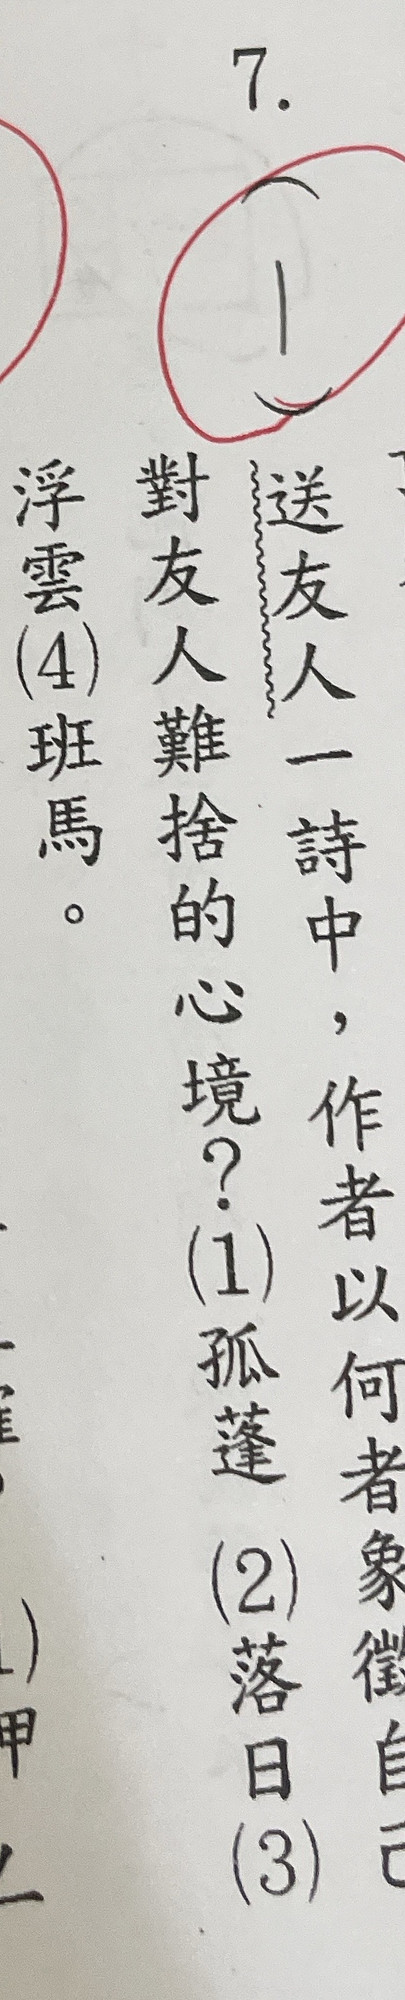 7.
( 1 )送友人一詩中，作者以何者象徵自己
對友人難捨的心境？(1)孤蓬 (2)落日(3)
浮雲(4)班馬。